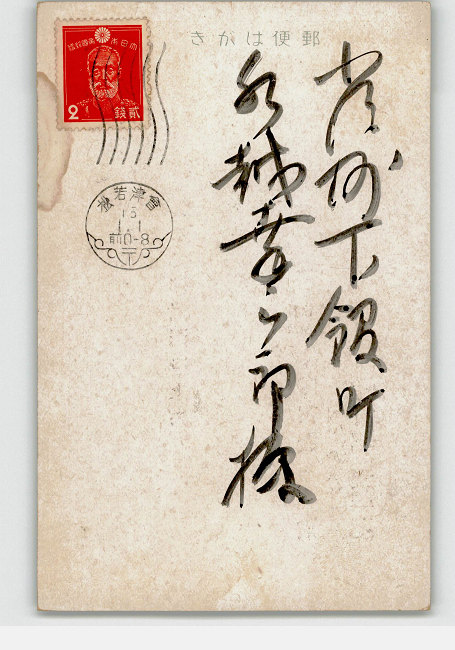 郵便はがき
常州下館町
水越幸 郎様
大日本帝國郵便
2 貳錢
會津若松
15
1.1
前0-8